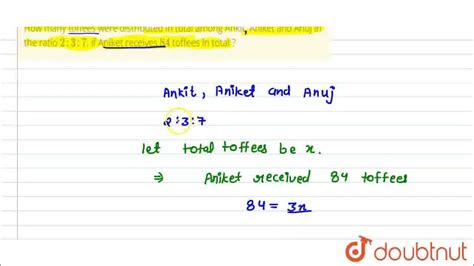 How many toffees were distributed in total among Ankit, Aniket and Anuj in
the ratio 2 : 3 : 7. if Aniket receives 84 toffees in total ?
Ankit, Aniket and Anuj
2:3:7
let total toffees be x.
⇒ Aniket received 84 toffees
84 = 3x
doubtnut